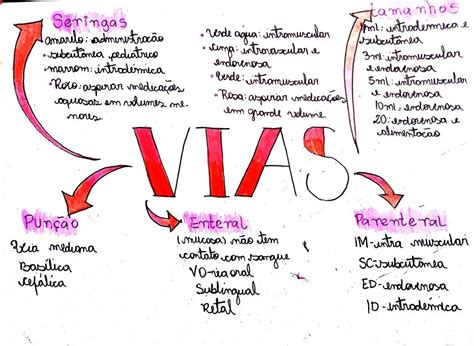 Seringas
amarilo: administração
subcutânea pediatrico
marrom: intradérmica
Roxo: aspirar medicações
aquosas em volumes me-
nores
• Verde agua: intramuscular
• cinza: intravascular e
endovenosa
• Verde: intramuscular
• Rosa: aspirar medicações
em grande volume
tamanhos
1ml: intradérmica e
subcutânea
3ml: intramuscular
e endovenosa
5ml: intramuscular
e endovenosa
10ml: endovenosa
20: endovenosa e
alimentação
VIAS
Punção
mediana
Basílica
cefálica
Enteral
(mucosas) não tem
contato com sangue
VO-via oral
Sublingual
Retal
Parenteral
IM-intra muscular
SC-subcutânea
ED-endovenosa
ID-intradérmica